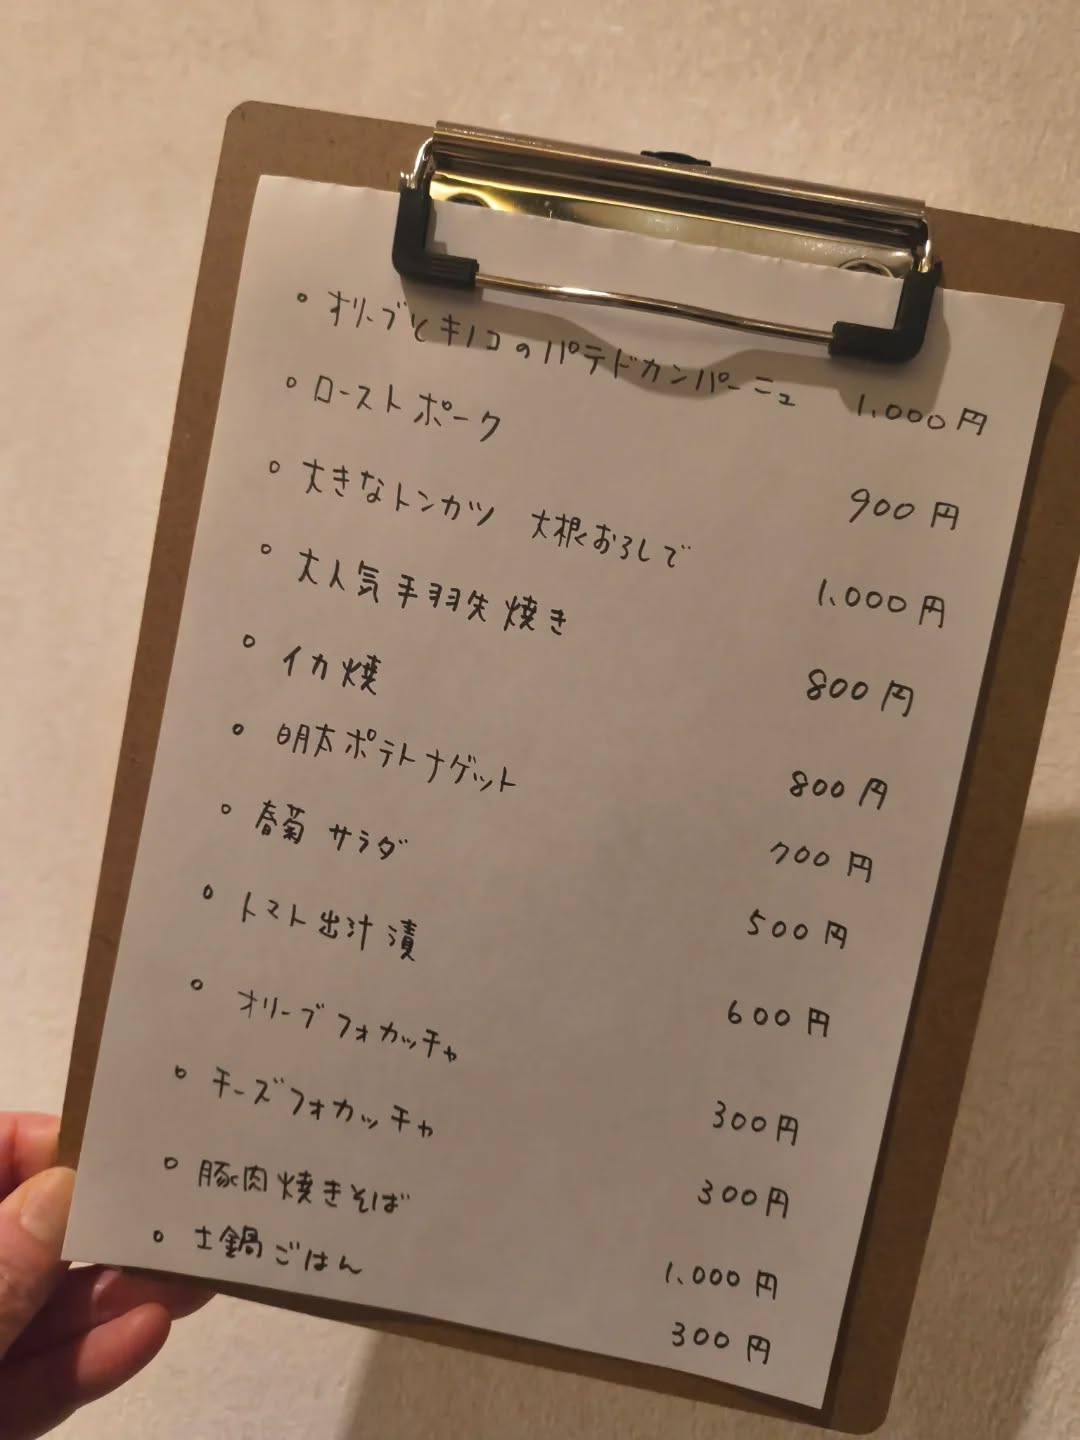 。オリーブとキノコのパテドカンパーニュ 1,000円
。ローストポーク 900円
。大きなトンカツ 大根おろしで 1,000円
。大人気手羽先焼き 800円
。イカ焼 800円
。明太ポテトナゲット 700円
。春菊サラダ 500円
。トマト出汁漬 600円
。オリーブフォカッチャ 300円
。チーズフォカッチャ 300円
。豚肉焼きそば 1,000円
。土鍋ごはん 300円